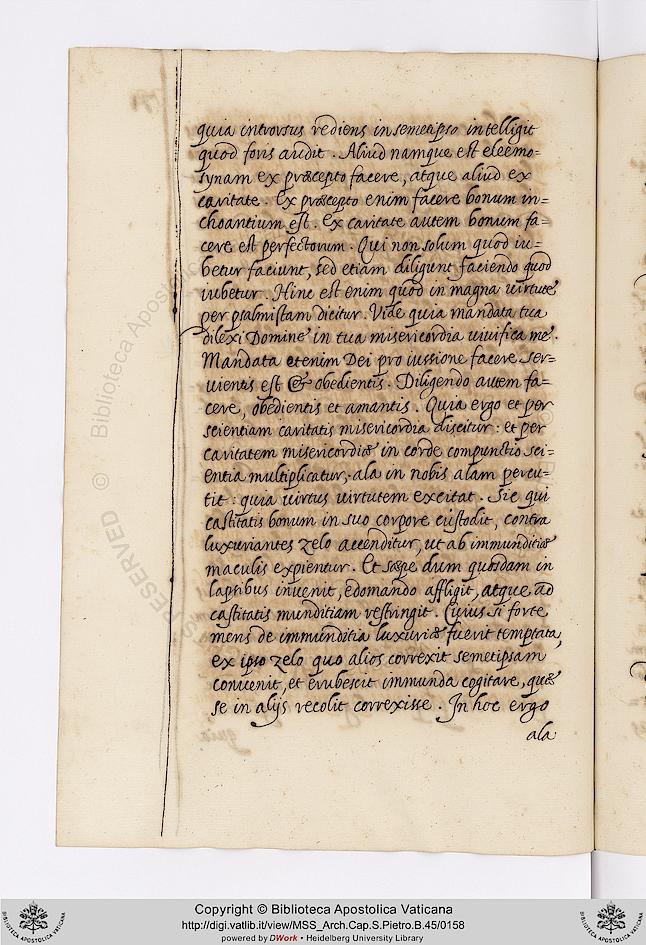 quia introrsus rediens in semetipso intelligit
quod foris audit. Aliud namque est eleemo=
synam ex præcepto facere, atque aliud ex
caritate. Ex præcepto enim facere bonum in=
choantium est. Ex caritate autem bonum fa=
cere est perfectorum. Qui non solum quod iu=
betur faciunt, sed etiam diligunt faciendo quod
iubetur. Hinc est enim quod in magna uirtute
per psalmistam dicitur. Vide quia mandata tua
dilexi Domine in tua misericordia uiuifica me.
Mandata etenim Dei pro iussione facere ser=
uientis est & obedientis. Diligendo autem fa=
cere, obedientis et amantis. Quia ergo et per
scientiam caritatis misericordia discitur: et per
caritatem misericordiæ in corde compunctio sci=
entia multiplicatur, ala in nobis alam percu=
tit: quia uirtus uirtutem excitat. Sic qui
castitatis bonum in suo corpore custodit, contra
luxuriantes zelo accenditur, ut ab immunditiæ
maculis expientur. Et sæpe dum quosdam in
lapsibus inuenit, edomando affligit, atque ad
castitatis munditiam restringit. Cuius si forte
mens de immunditia luxuriæ fuerit temptata,
ex ipso zelo quo alios correxit semetipsam
conuenit, et erubescit immunda cogitare, quæ
se in alijs recolit correxisse. In hoc ergo
ala
© Biblioteca Apostolica
RESERVED
Copyright © Biblioteca Apostolica Vaticana
http://digi.vatlib.it/view/MSS_Arch.Cap.S.Pietro.B.45/0158
powered by DWork • Heidelberg University Library
BIBLIOTECA APOSTOLICA VATICANA
BIBLIOTECA APOSTOLICA VATICANA